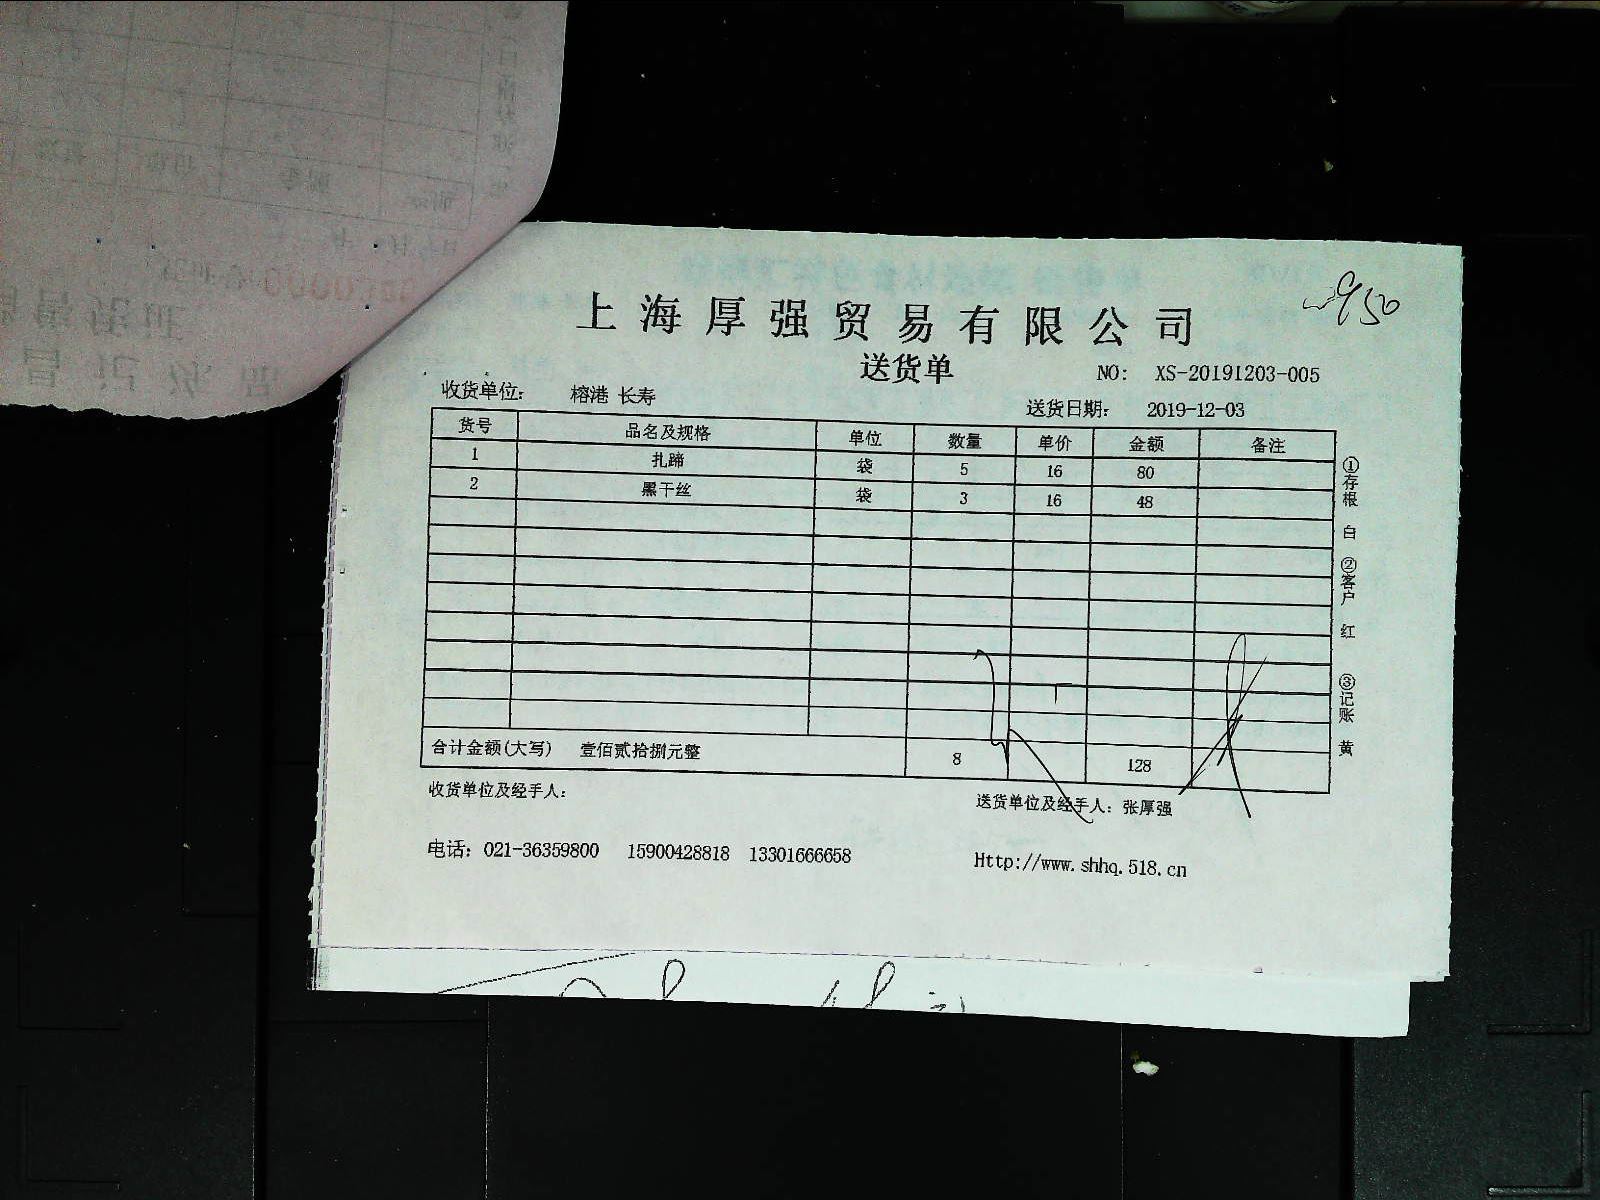 上海厚强贸易有限公司
950
送货单
NO: XS-20191203-005
收货单位: 榕港 长寿
送货日期: 2019-12-03
货号 品名及规格 单位 数量 单价 金额 备注
1 扎蹄 袋 5 16 80
2 黑干丝 袋 3 16 48
合计金额(大写) 壹佰贰拾捌元整 8 128
收货单位及经手人:
送货单位及经手人: 张厚强
电话: 021-36359800 15900428818 13301666658
Http://www.shhq.518.cn
①存根 白 ②客户 红 ③记账 黄